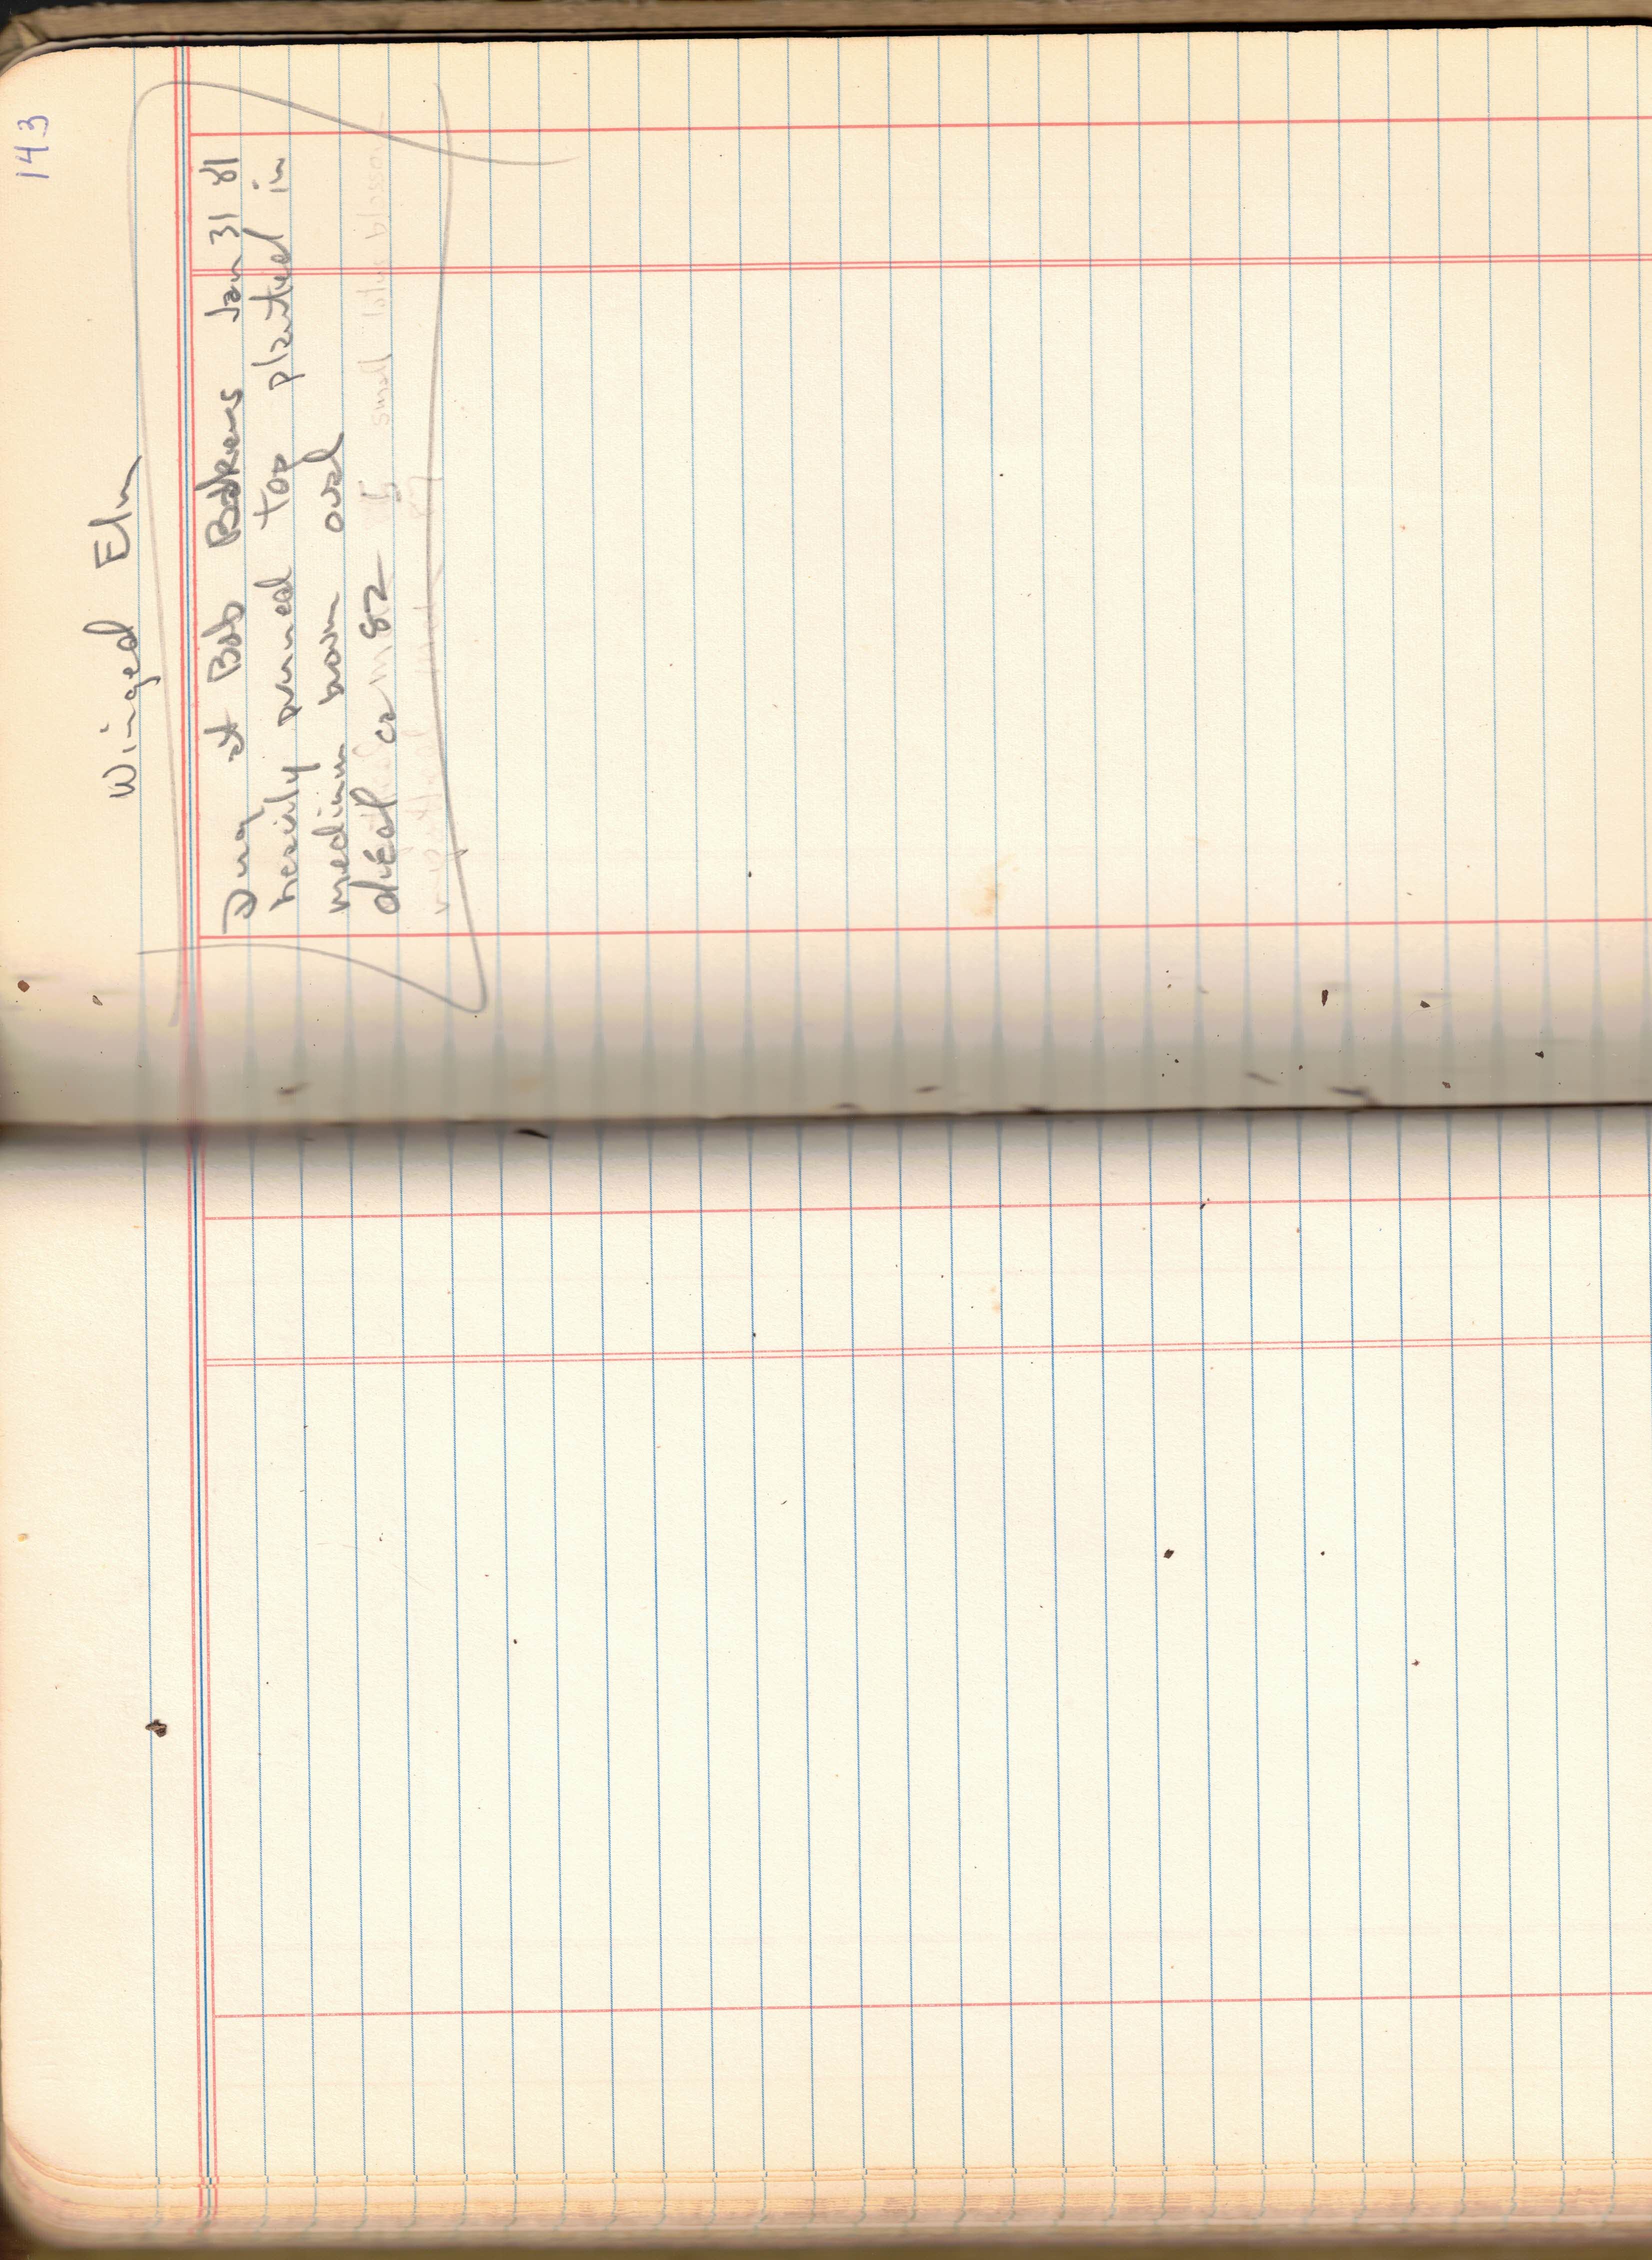 143
Winged Elm
Dug at Bob Bakers Jan 31 81
heavily pruned top planted in
medium brown oval
died ca 82
small lotus blossom
repotted Mar 87